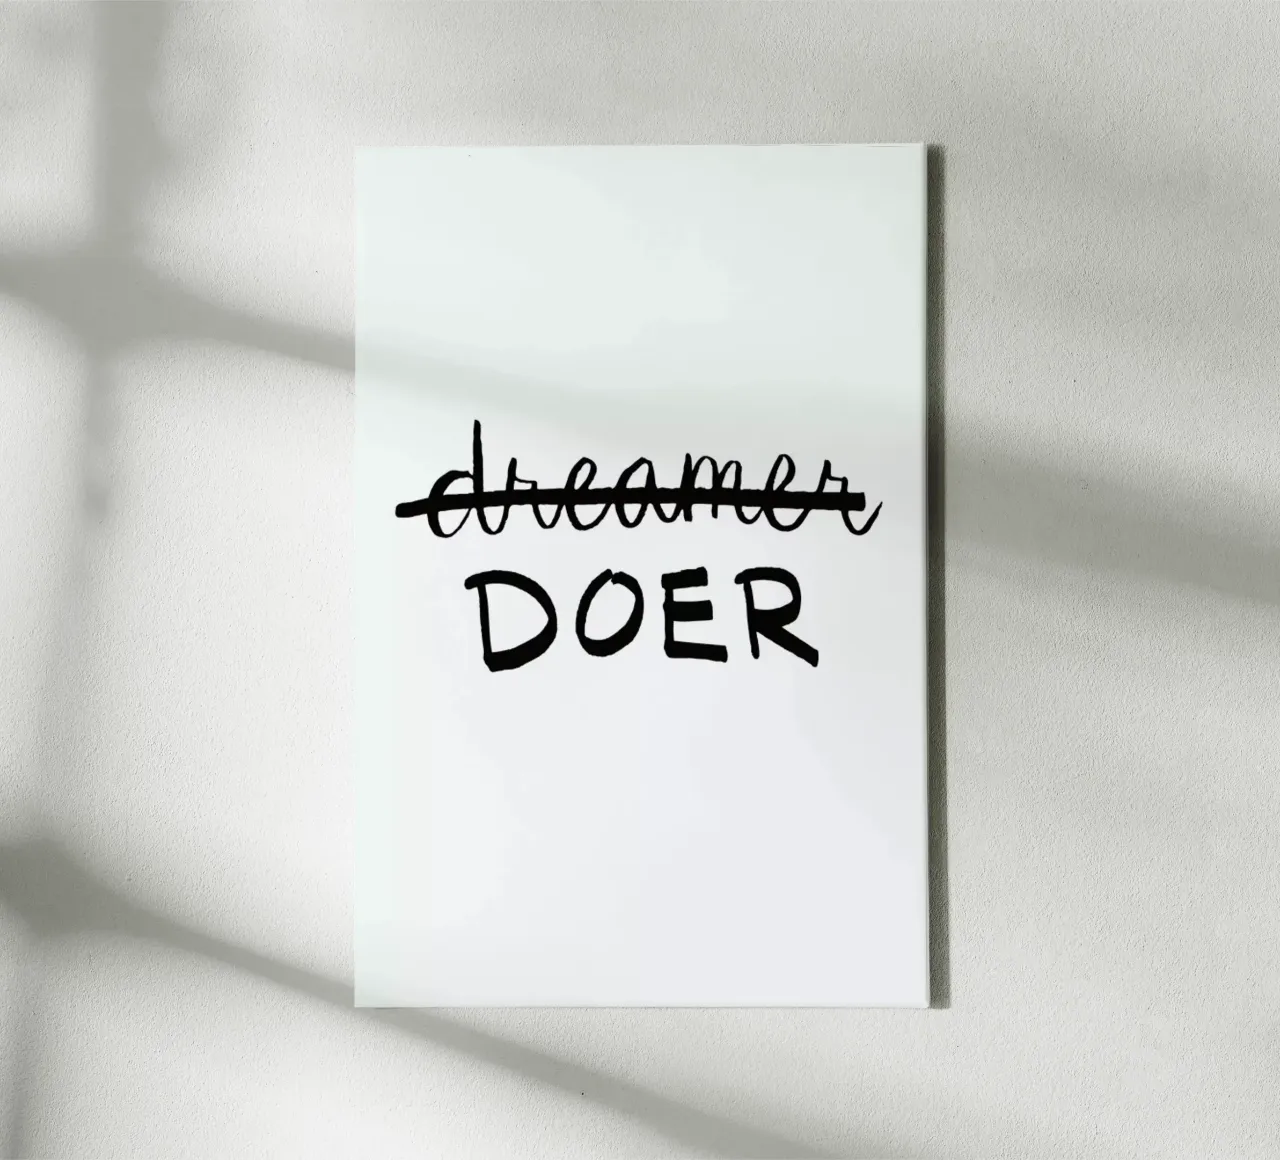 dreamer
DOER